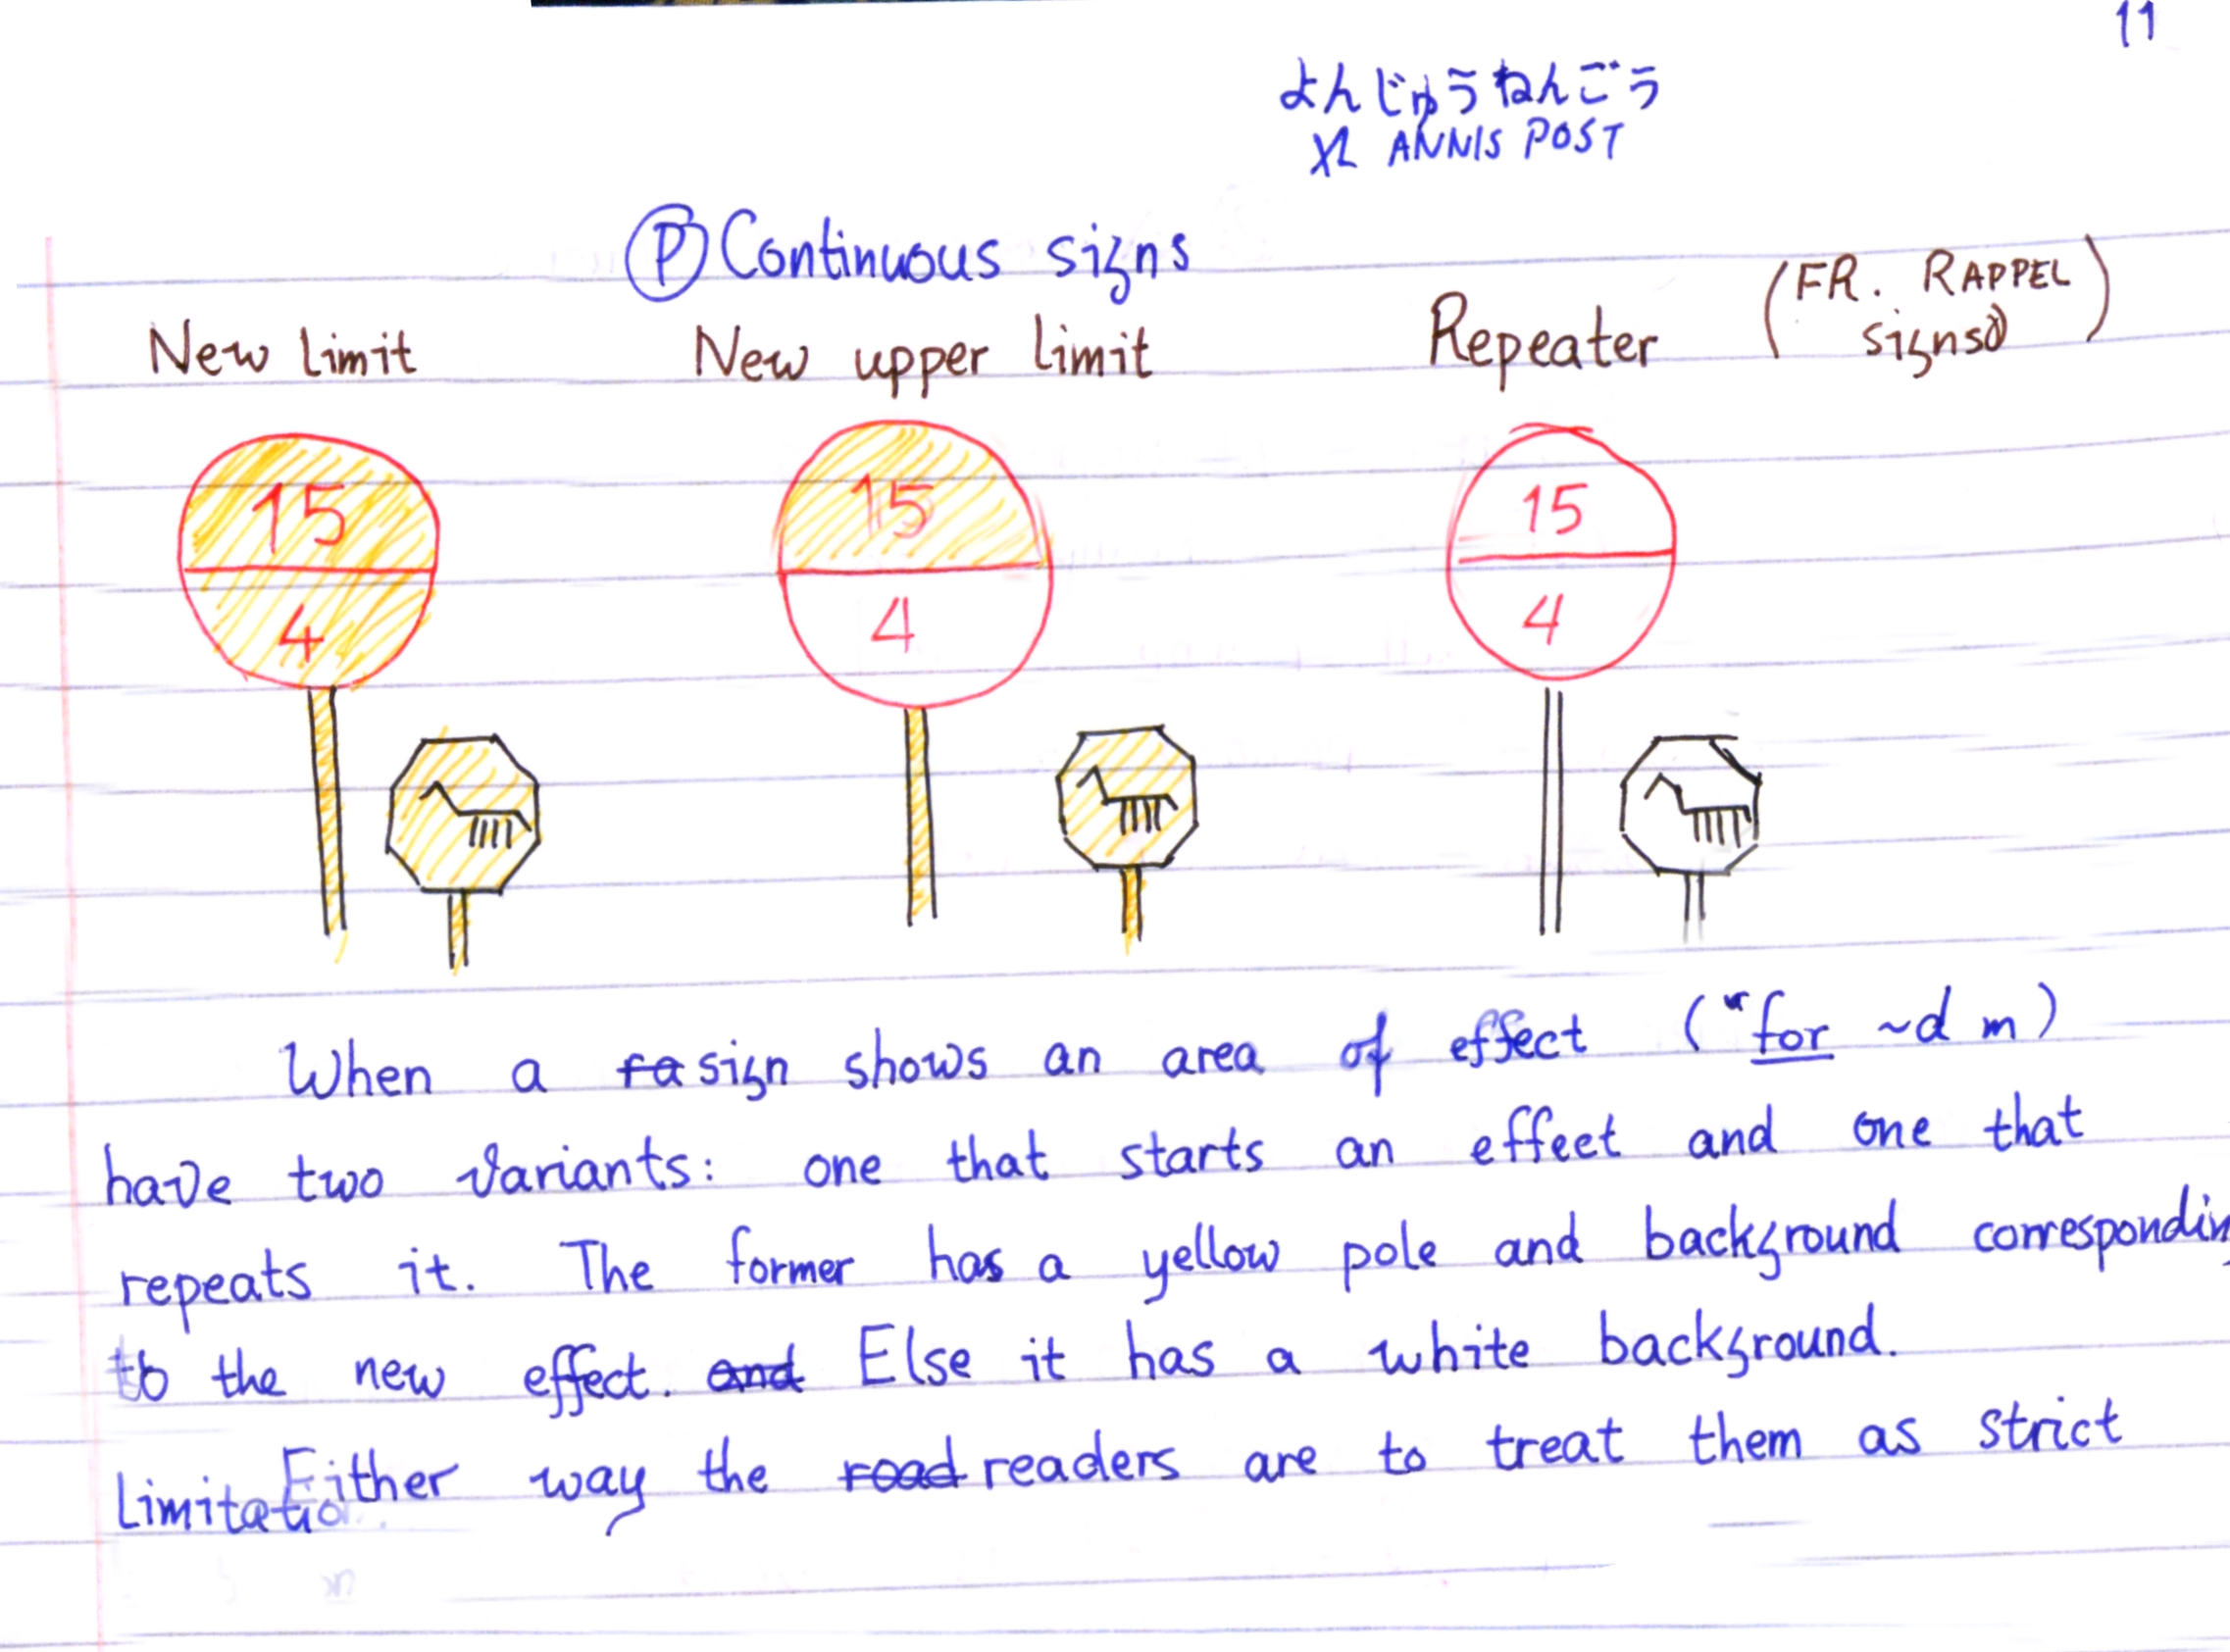 11
よんじゅうねんごう
XL ANNIS POST
Ⓟ Continuous signs
New limit New upper limit Repeater (FR. RAPPEL signs)
15 15 15
4 4 4
When a ra sign shows an area of effect ("for ~d m)
have two variants: one that starts an effect and one that
repeats it. The former has a yellow pole and background correspondin
to the new effect. and Else it has a white background.
Either way the road readers are to treat them as strict
limitatio